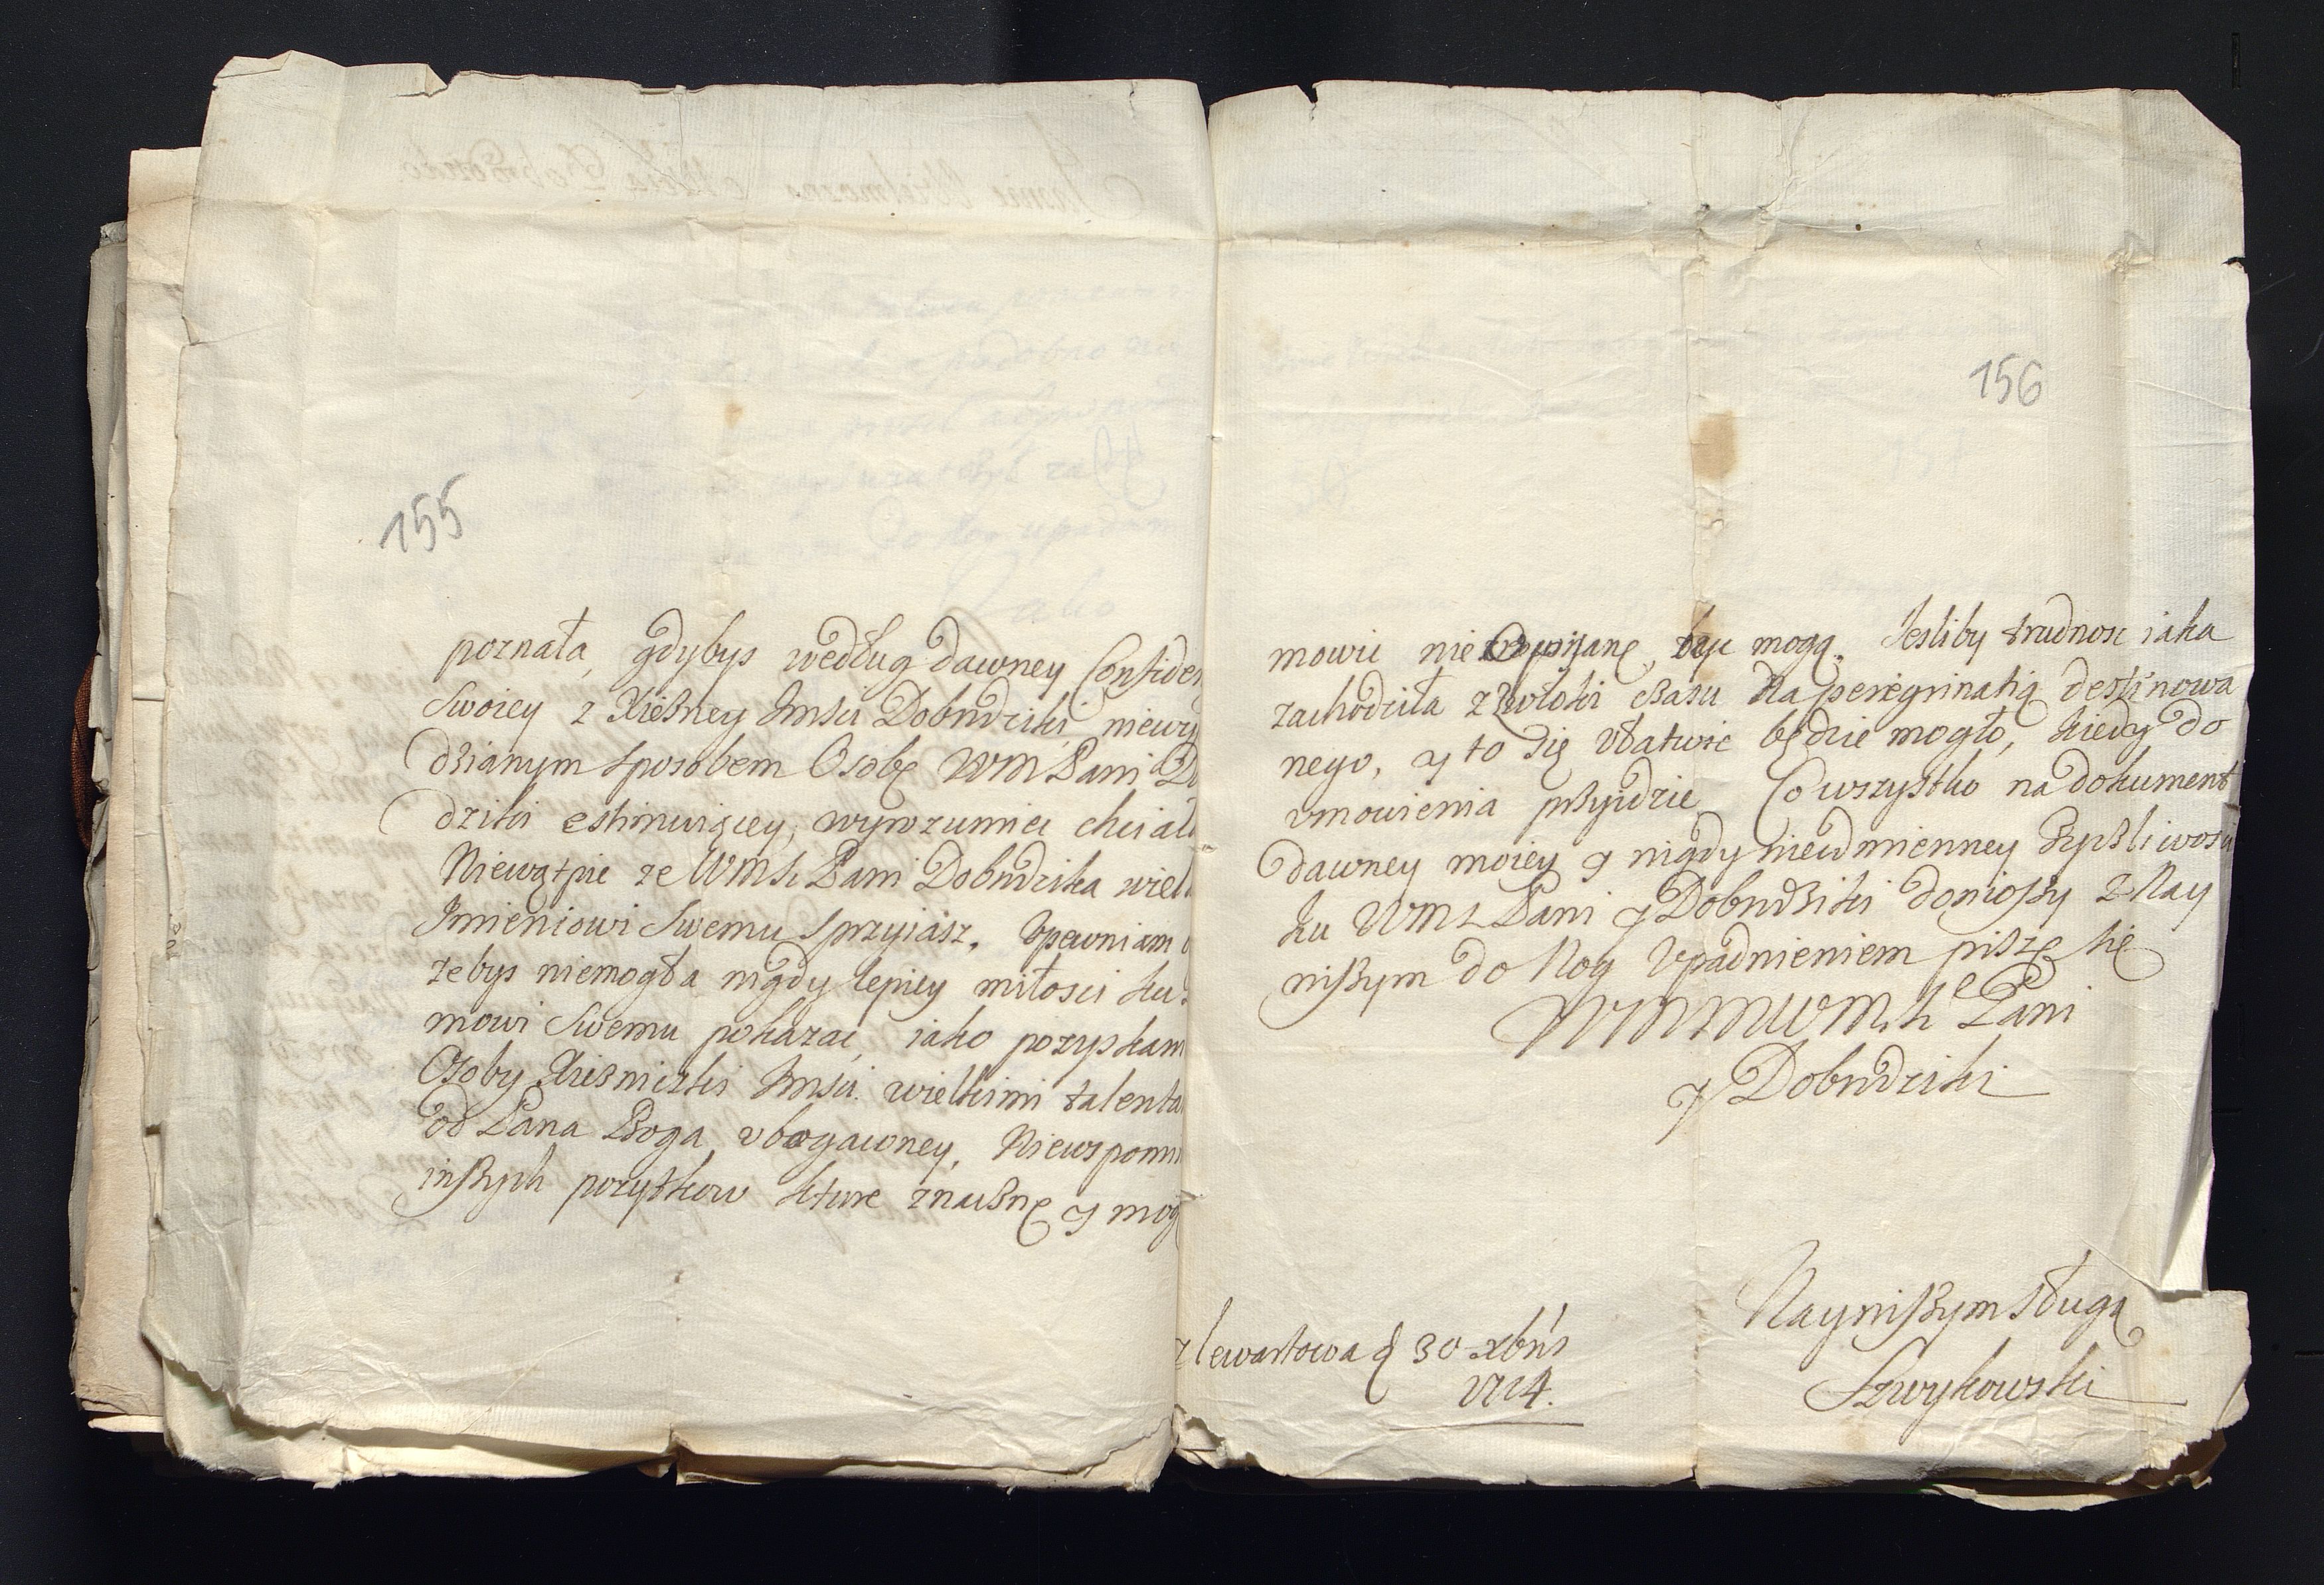 155
poznała, gdybys według dawney Confiden
Swoiey z Xiężney Jmsci Dobrodziki niewy
dzianym sposobem Osobę WM Pani Do
dziki estimuiącey, wyrozumiec chciał
Niewątpie ze WMsci Pani Dobrodzika wiel
Jmieniowi Swemu sprzyiasz. Vpewniam
zebys niemogła nigdy lepiey miłosci ku
mowi Swemu pokazac, iako pozyskam
Osoby Xiężniczki Jmsci. wielkimi talenta
od Pana Boga vbogaconey, Niewspomi
inszych pozytkow ktore znaczne y mog
156
mowic nie być mogą. Jesliby trudnosc iaka
zachodziła z zwłoki czasu Na peregrinatią destinowa
nego, y to się vłatwic będzie mogło, kiedy do
vmowienia przyidzie Co wszystko na dokument
dawney moiey y nigdy nieodmienney zyczliwosci
ku WMs Pani y Dobrodziki doniozszy z Nay
niszym do Nog Vpadnieniem piszę się
WMMWM. Pani
y Dobrodziki
Nayniszym Sługą
z Lewartowa d 30 xbris
1714.
Szwykowski